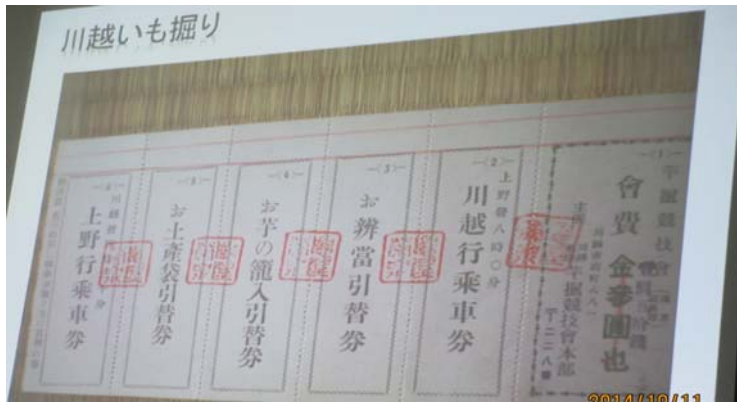 川越いも掘り
—(1)—
芋掘競技會
會費 金壹圓也
芋掘競技會本部
—(2)—
上野發八時〇分
川越行乗車券
—(3)—
お辨當引替券
—(4)—
お芋の籠入引替券
—(5)—
お土産袋引替券
—(6)—
上野行乗車券
2014/10/11